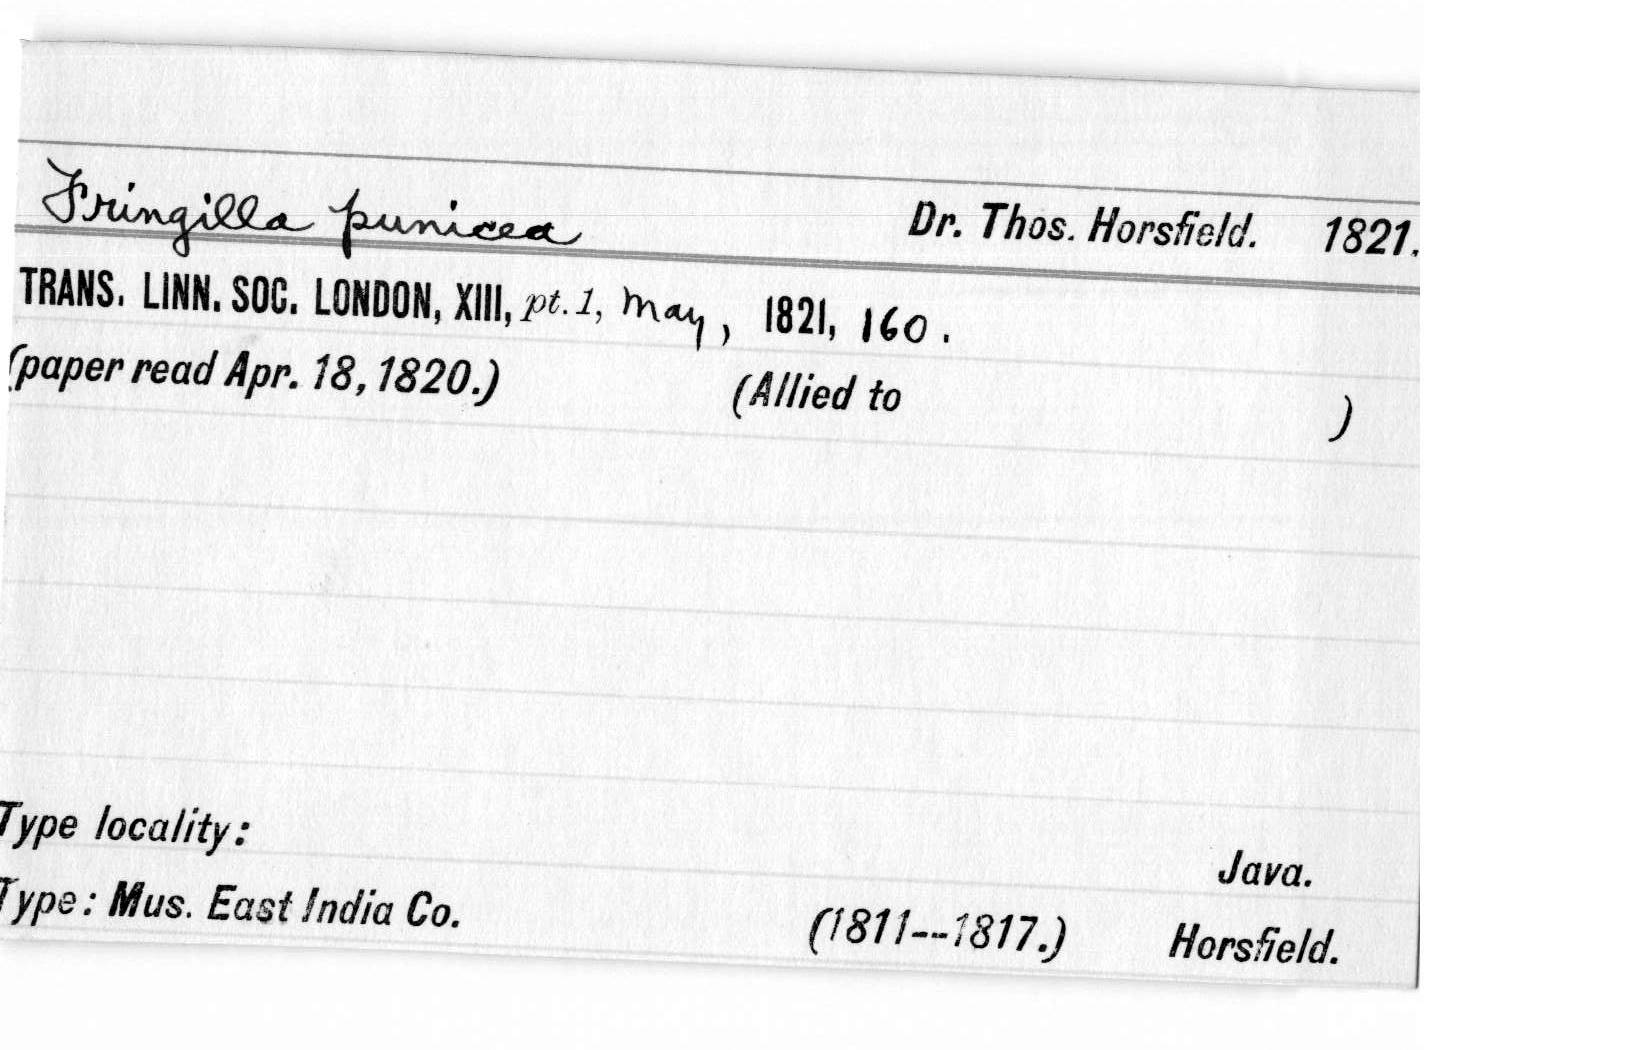 Fringilla punicea Dr. Thos. Horsfield. 1821.
TRANS. LINN. SOC. LONDON, XIII, pt. 1, May, 1821, 160.
(paper read Apr. 18, 1820.) (Allied to )
Type locality: Java.
Type: Mus. East India Co. (1811--1817.) Horsfield.